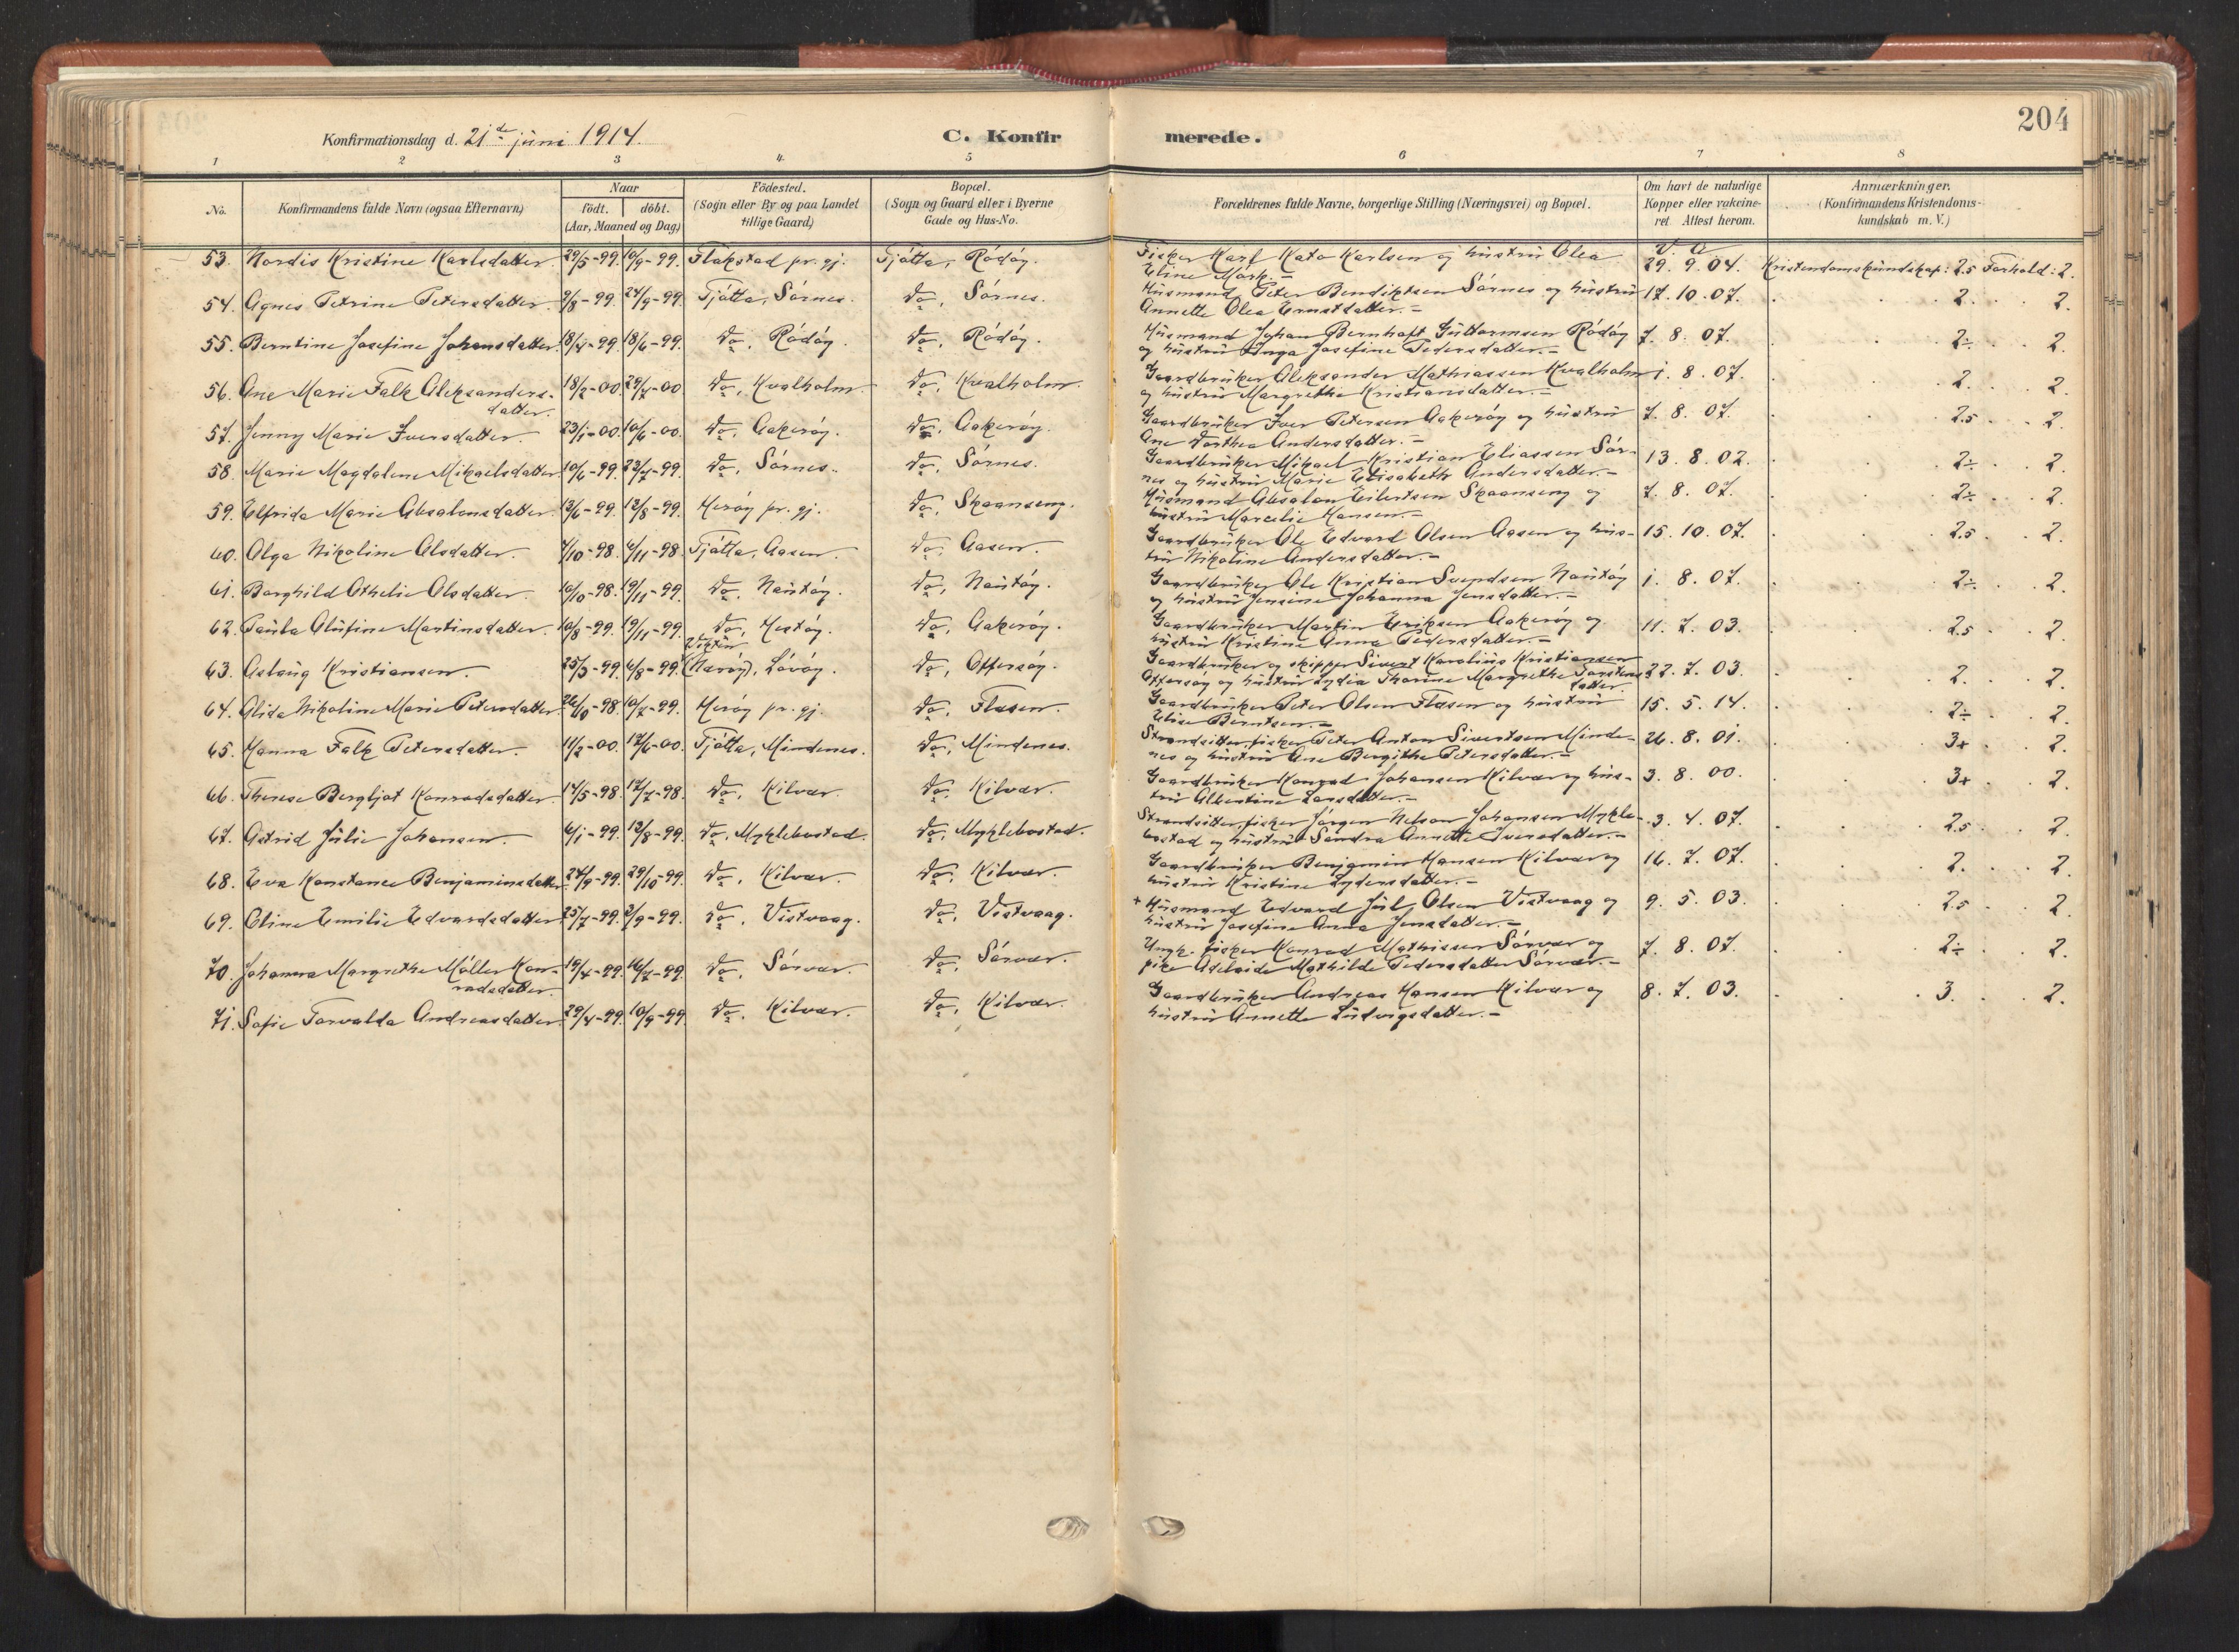 204
Konfirmationsdag d. 21de juni 1914.
C. Konfirmerede.
1 2 3 4 5 6 7 8
No. Konfirmandens fulde Navn (ogsaa Efternavn) Naar födt. döbt. (Aar, Maaned og Dag) Födested. (Sogn eller By og paa Landet tillige Gaard) Bopæl. (Sogn og Gaard eller i Byerne Gade og Hus-No. Forældrenes fulde Navne, borgerlige Stilling (Næringsvei) og Bopæl. Om havt de naturlige Kopper eller vakcineret. Attest herom. Anmærkninger. (Konfirmandens Kristendomskundskab m. V.)
53. Nordis Kristine Karlsdatter. 29/5-99. 10/9-99. Flakstad pr. gj. Tjøtta, Rödöy. Fisker Karl Kato Karlsen og hustru Olea
Eline Mörk.- V. A. 29. 9. 04. Kristendomskundskap: 2.5 Forhold: 2.
54. Agnes Petrine Petersdatter 9/8-99. 24/9-99. Tjötta, Sörnes. do, Sörnes. Husmand Peter Bendiktsen Sörnes og hustru
Annette Olea Ernstdatter.- 17. 10. 07. 2. 2.
55. Berntine Josefine Johansdatter. 18/4-99. 18/6-99. do, Rödöy. do, Rödöy. Husmand Johan Bernhoft Guttormsen Rödöy
og hustru Inga Josefine Pedersdatter.- 7. 8. 07. 2÷ 2.
56. Ane Marie Falk Aleksanders-
datter. 18/2-00. 29/7-00 do, Kvalholm. do, Kvalholm. Gaardbruker Aleksander Mathiassen Kvalholm
og hustru Margrethe Kristiansdatter.- 1. 8. 07. 2. 2.
57. Jenny Marie Iversdatter. 23/1-00. 10/6-00. do, Aakeröy. do, Aakeröy. Gaardbruker Iver Petersen Aakeröy og hustru
Ane Dorthea Andersdatter.- 7. 8. 07. 2.5 2.
58. Marie Magdalene Mikaelsdatter 10/6-99. 23/7-99. do, Sörnes. do, Sörnes. Gaardbruker Mikael Kristian Eliassen Sör-
nes og hustru Marie Elisabeth Andersdatter.- 13. 8. 02. 2÷ 2.
59. Elfrida Marie Absalonsdatter. 12/6-99. 12/8-99. Heröy pr. gj. do, Skaanseng. Husmand Absalon Eilertsen Skaanseng og
hustru Marcelie Hansen.- 7. 8. 07. 2÷ 2.
60. Olga Nikoline Olsdatter. 4/10-98. 6/11-98. Tjötta, Aasen. do, Aasen. Gaardbruker Ole Edvard Olsen Aasen og hus-
tru Nikoline Andersdatter.- 15. 10. 07. 2.5 2.
61. Borghild Othelie Olsdatter. 10/10-98. 19/11-99. do. Nautöy. do, Nautöy. Gaardbruker Ole Kristian Svendsen Nautöy
og hustru Jensine Johanna Jensdatter.- 1. 8. 07. 2÷ 2.
62. Paula Alufine Martinsdatter. 10/8-99. 19/11-99. do, Hestöy. do, Aakeröy. Gaardbruker Martin Eriksen Aakeröy og
hustru Kristine Anna Pedersdatter.- 11. 7. 03. 2.5 2.
63. Aslaug Kristiansen. 25/3-99. 6/8-99. Vikten (Naröy), Lövöy. do, Offersöy. Gaardbruker og skipper Sivert Karolius Kristiansen
Offersöy og hustru Lydia Thorine Margrethe Torstens-
datter. 22. 7. 03. 2. 2.
64. Alida Nikoline Marie Petersdatter. Heröy pr. gj. do, Flasen. Gaardbruker Peter Olsen Flasen og hustru
Elise Berntsen.- 15. 5. 14. 2÷ 2.
65. Hanna Falk Petersdatter. 11/2-00. 17/6-00. Tjötta, Mindenes. do, Mindenes. Strandsitter, fisker Peter Anton Sivertsen Minde-
nes og hustru Ane Bergitha Petersdatter.- 26. 8. 01. 3+ 2.
66. Therese Bergljot Konradsdatter. 14/5-98. 17/7-98. do, Kilvær. do, Kilvær. Gaardbruker Konrad Johansen Kilvær og hus-
tru Albertine Larsdatter.- 3. 8. 00. 3+ 2.
67. Astrid Julie Johansen. 6/1-99. 13/8-99. do, Myklebostad. do, Myklebostad. Strandsitter, fisker Jörgen Nelson Johansen Mykle-
bostad og hustru Sandra Annette Iversdatter.- 3. 4. 07. 2.5 2.
68. Eva Konstance Benjaminsdatter 24/9-99. 29/10-99. do, Kilvær. do, Kilvær. Gaardbruker Benjamin Hansen Kilvær og
hustru Kristine Lydersdatter.- 16. 7. 07. 2. 2.
69. Oline Emilie Edvardsdatter 25/7-99. 3/9-99. do, Vistvaag. do, Vistvaag. + Husmand Edvard Jul. Olsen Vistvaag og
hustru Josefine Anna Jensdatter.- 9. 5. 03. 2.5 2.
70. Johanna Margrethe Möller Kon-
radsdatter. 19/4-99. 16/7-99. do, Sörvær. do, Sörvær. Ungk. fisker Konrad Mathissen Sörvær og
pike Adelaide Mathilde Pedersdatter Sörvær.- 7. 8. 07. 2÷ 2.
71. Sofie Torvalda Andreasdatter. 29/4-99. 10/9-99. do. Kilvær. do, Kilvær. Gaardbruker Andreas Hansen Kilvær og
hustru Annette Ludvigsdatter.- 8. 7. 03. 3. 2.